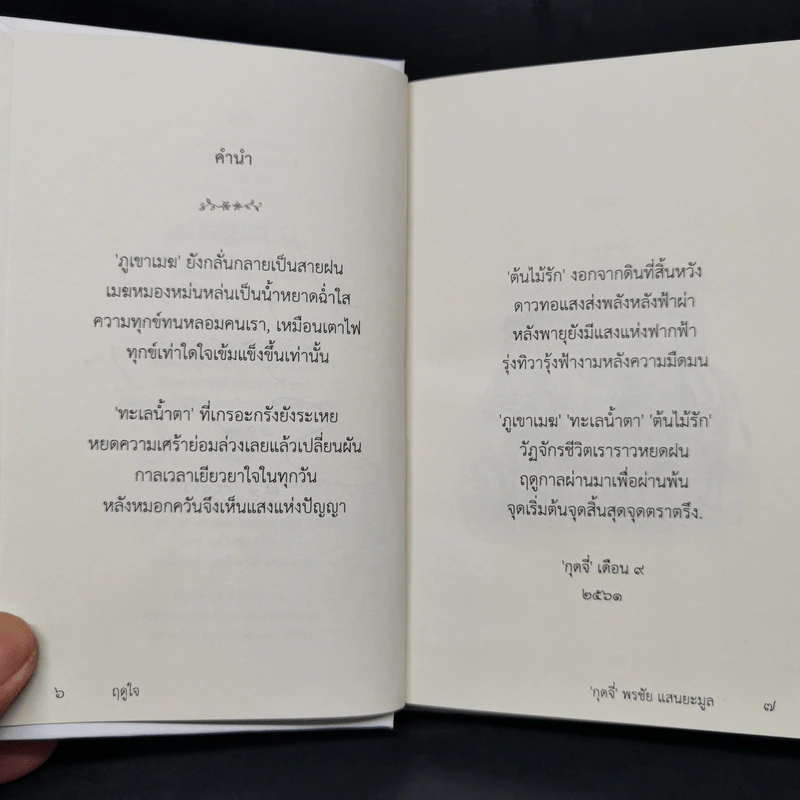 คำนำ
'ภูเขาเมฆ' ยังกลั่นกลายเป็นสายฝน
เมฆหมองหม่นหล่นเป็นน้ำหยาดฉ่ำใส
ความทุกข์ทนหลอมคนเรา, เหมือนเตาไฟ
ทุกข์เท่าใดใจเข้มแข็งขึ้นเท่านั้น
'ทะเลน้ำตา' ที่เกรอะกรังยังระเหย
หยดความเศร้าย่อมล่วงเลยแล้วเปลี่ยนผัน
กาลเวลาเยียวยาใจในทุกวัน
หลังหมอกควันจึงเห็นแสงแห่งปัญญา
๖ ฤดูใจ
'ต้นไม้รัก' งอกจากดินที่สิ้นหวัง
ดาวทอแสงส่งพลังหลังฟ้าผ่า
หลังพายุยังมีแสงแห่งฟากฟ้า
รุ่งทิวารุ้งฟ้างามหลังความมืดมน
'ภูเขาเมฆ' 'ทะเลน้ำตา' 'ต้นไม้รัก'
วัฏจักรชีวิตเราราวหยดฝน
ฤดูกาลผ่านมาเพื่อผ่านพ้น
จุดเริ่มต้นจุดสิ้นสุดจุดตราตรึง.
'กุดจี่' เดือน ๙
๒๕๖๑
'กุดจี่' พรชัย แสนยะมูล ๗